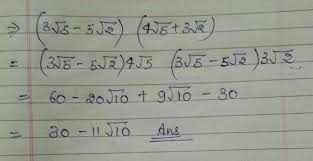 ⇒ (3√5 - 5√2) (4√5 + 3√2)
= (3√5 - 5√2)4√5 (3√5 - 5√2)3√2
= 60 - 20√10 + 9√10 - 30
= 30 - 11√10 Ans